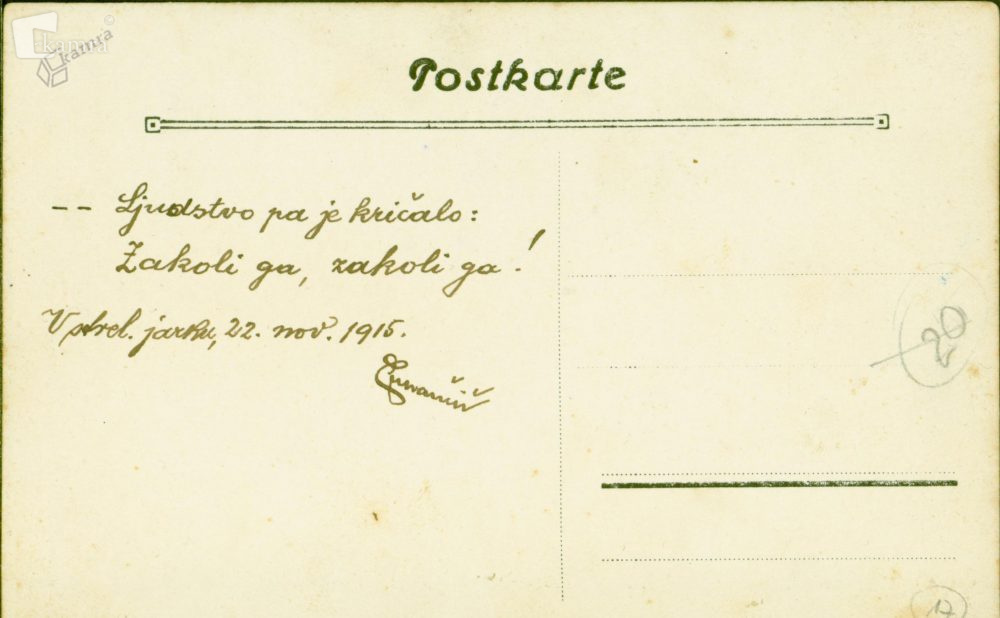 kamra
Postkarte
-- Ljudstvo pa je kričalo:
Zakoli ga, zakoli ga!
V strel. jarku, 22. nov. 1915.
20
17